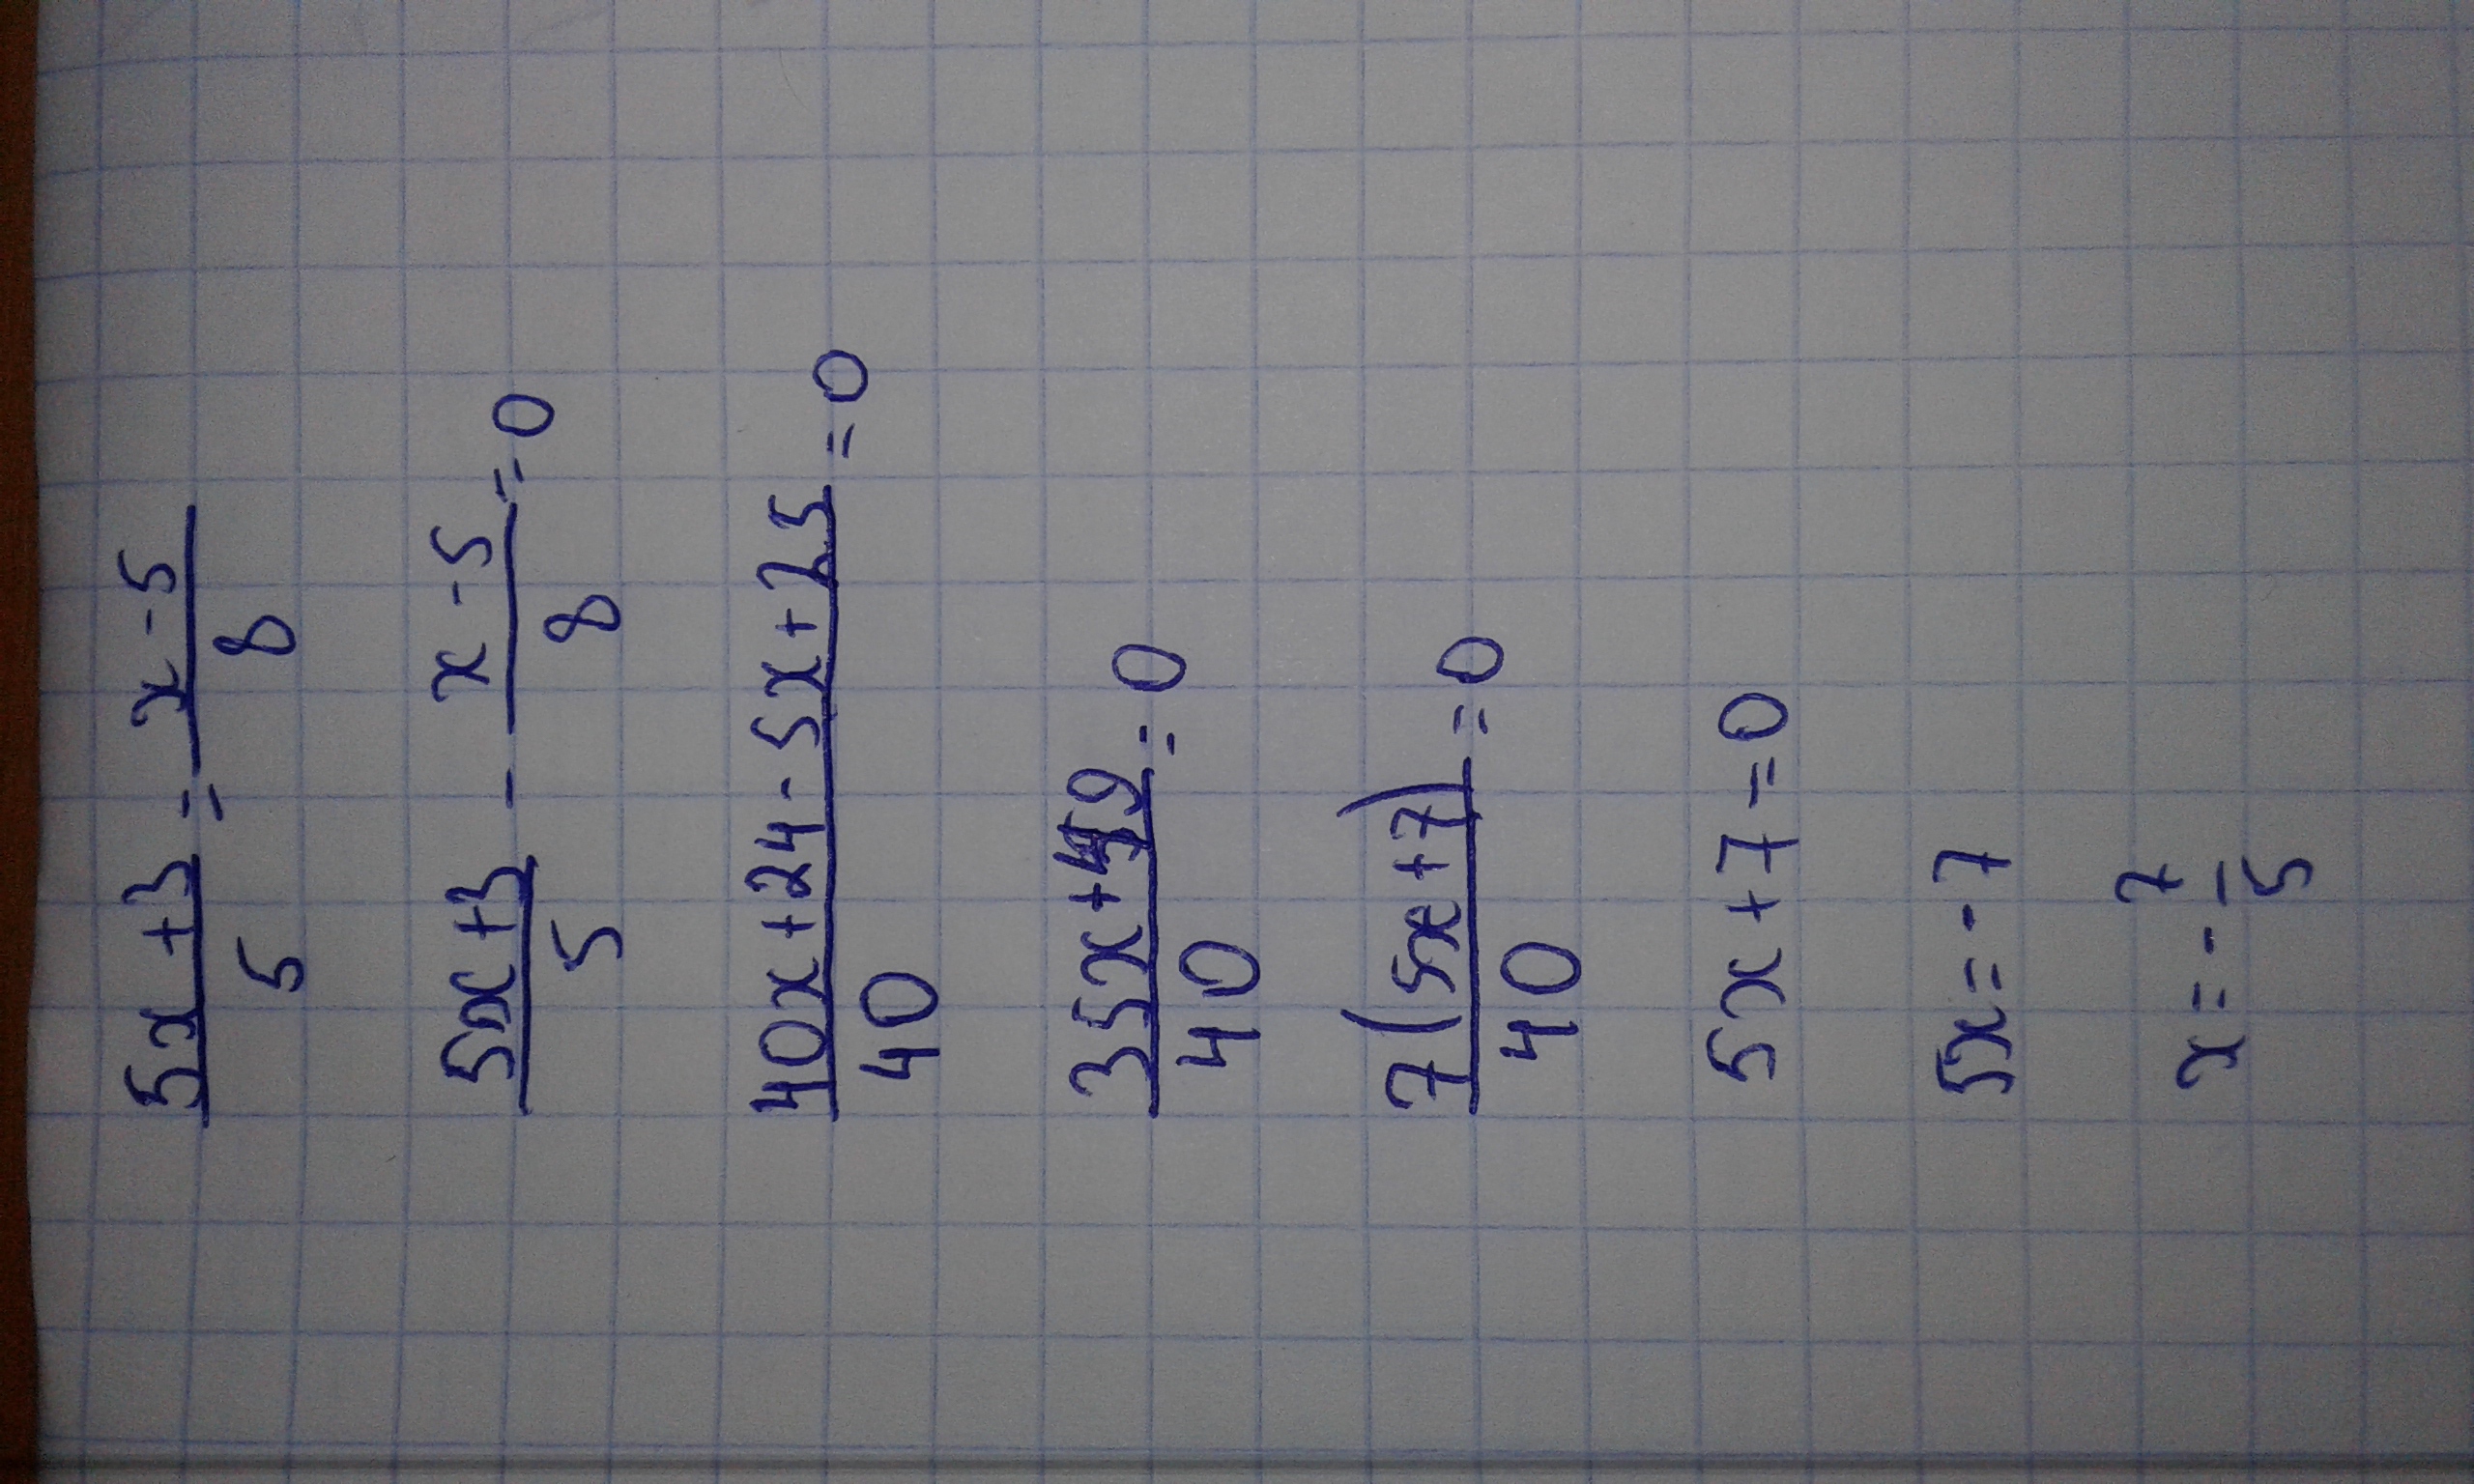 (5x+3)/5 = (x-5)/8
(5x+3)/5 - (x-5)/8 = 0
(40x+24-5x+25)/40 = 0
(35x+49)/40 = 0
7(5x+7)/40 = 0
5x+7=0
5x=-7
x=-7/5